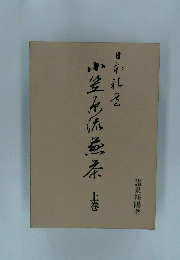 日本礼道
小笠原流煎茶
上巻